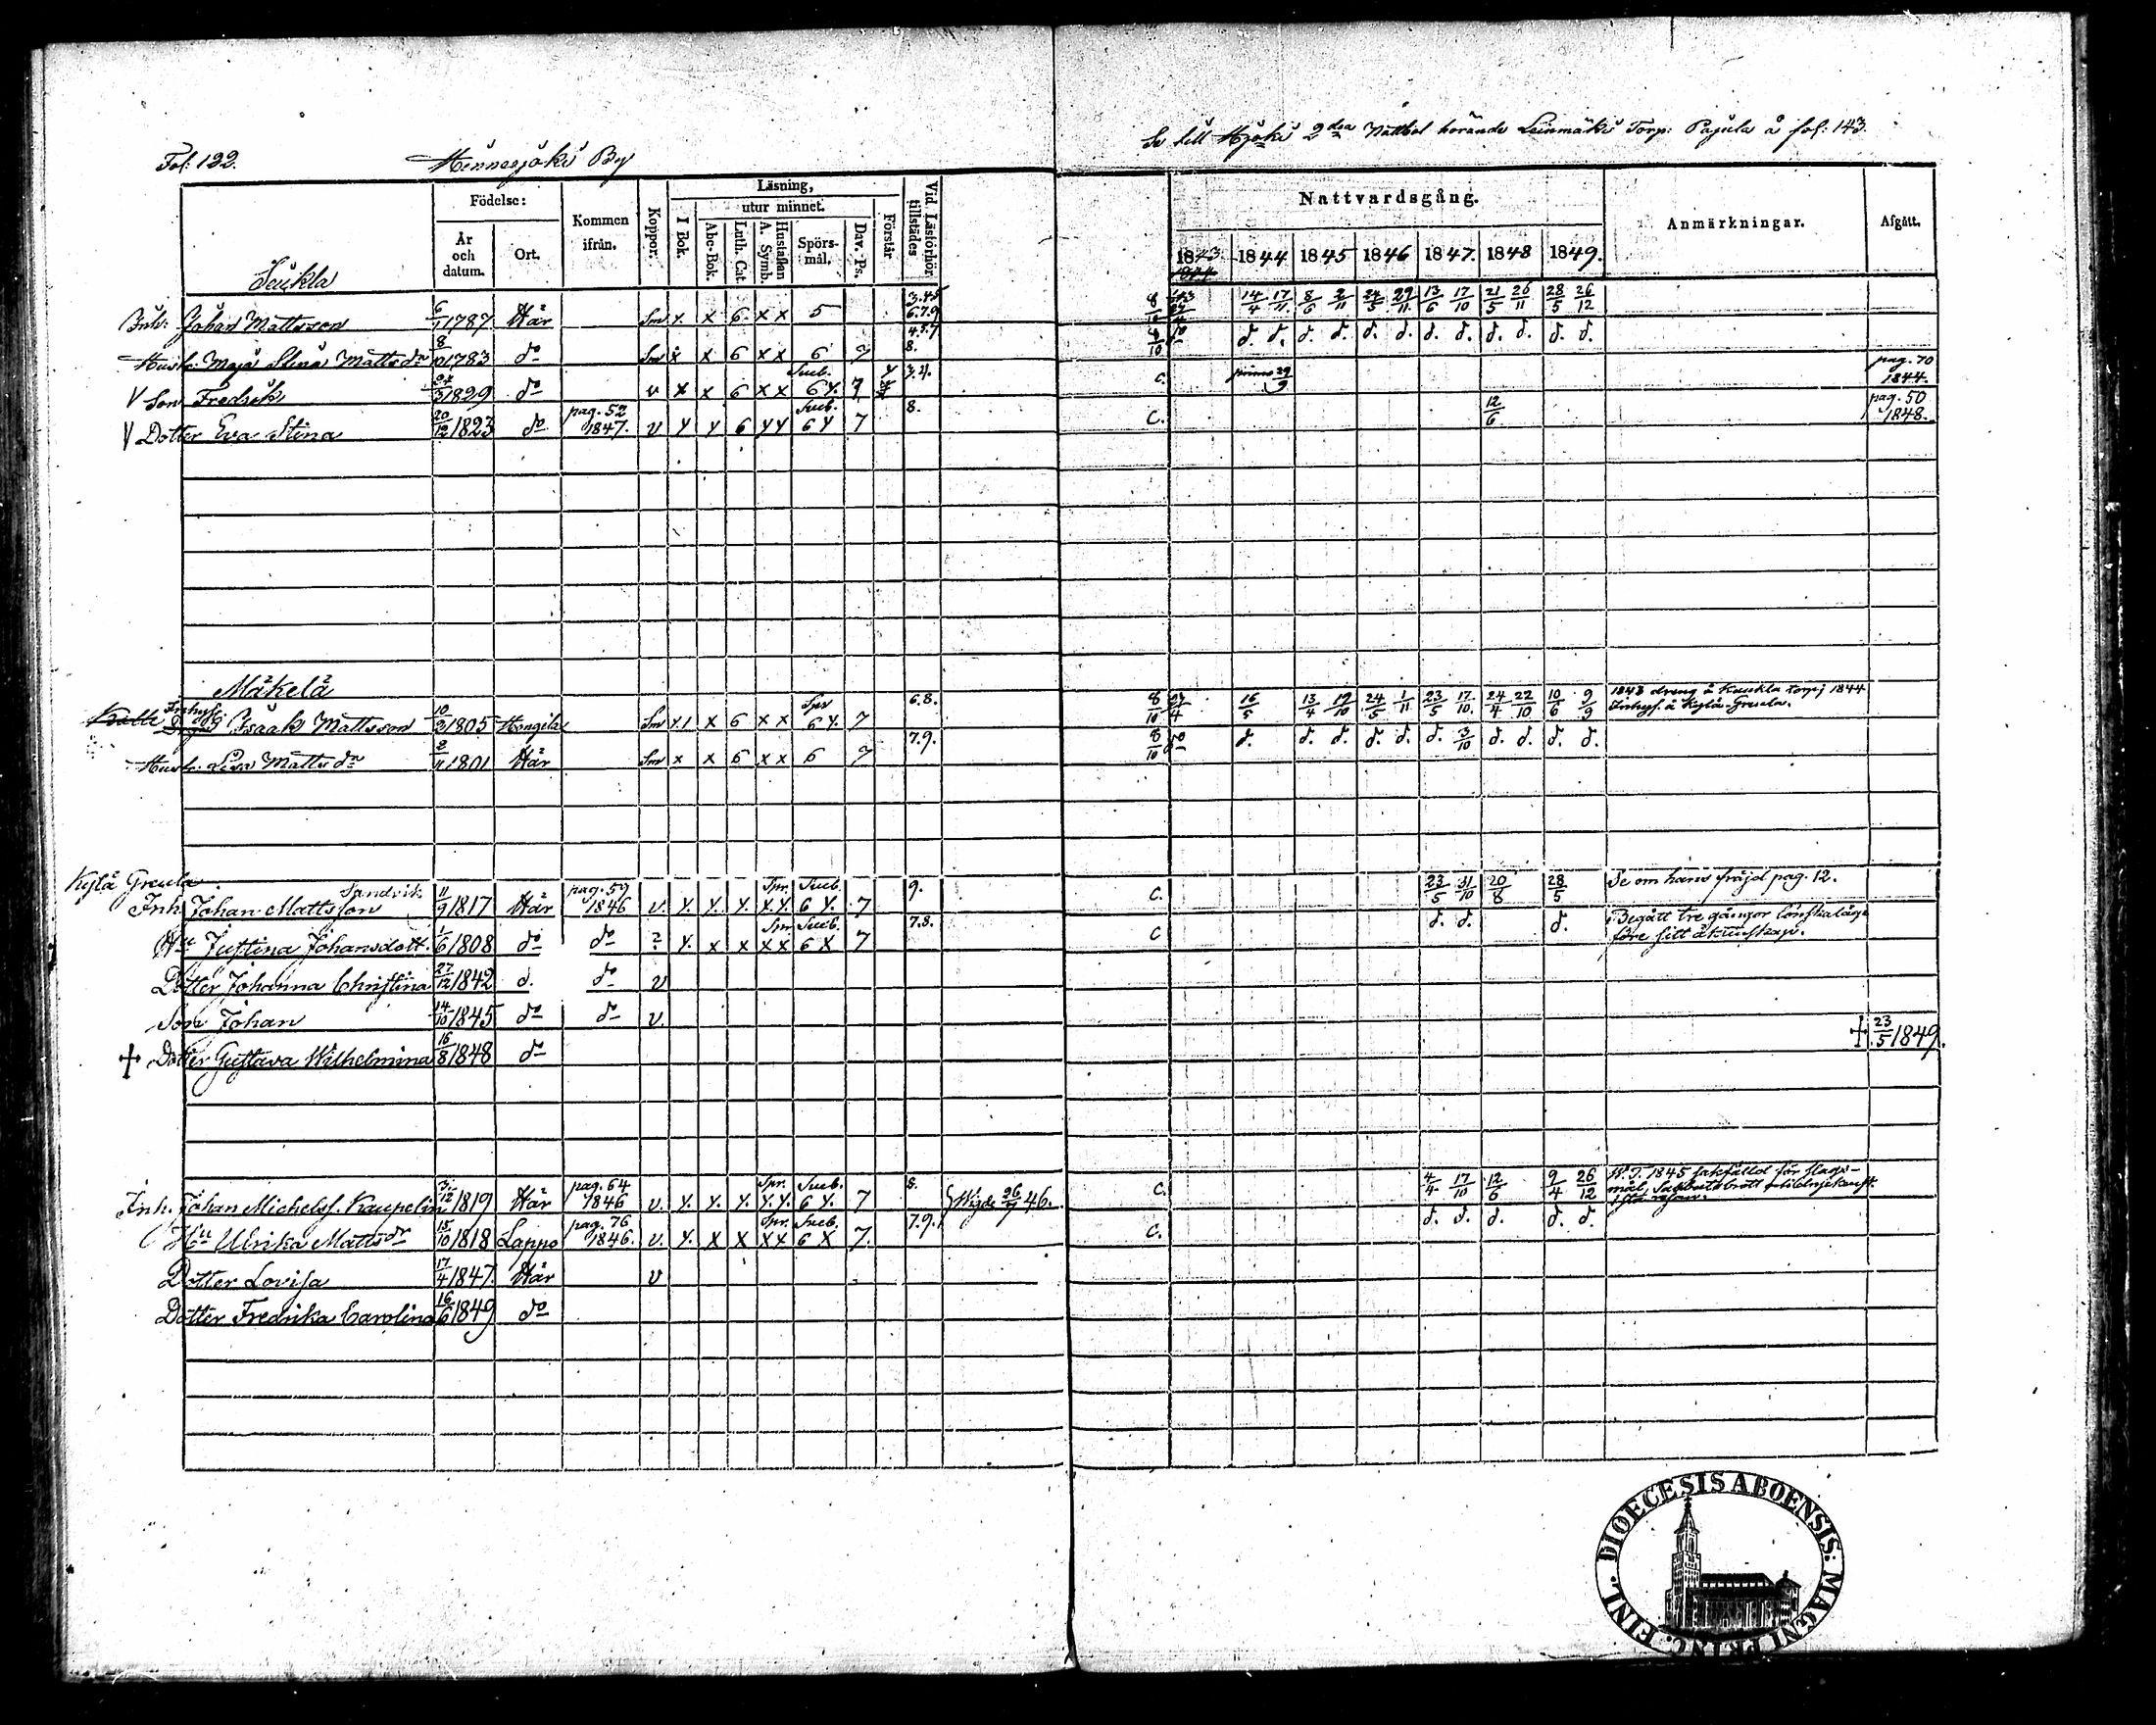 Fol: 122. Hinnerjoki By
Se till Hjoki 2dra Nattbol hörande Leinmäki Torp: Pajula å fol: 143.
Födelse: År och datum. Ort. Kommen ifrån. Koppor. Läsning, I Bok. utur minnet. Abc-Bok. Luth. Cat. Hustaflan A. Symb. Spörs-mål. Dav. Ps. Förstår Vid Läsförhör tillstädes
Nattvardsgång. 1843 1844 1845 1846 1847. 1848 1849. Anmärkningar. Afgått.
Inh: Johan Mattsson 6/1 1787 Här Sm x x 6 x x 5 3.4.5 6.7.9 8/10 14/4 17/11 8/6 2/11 24/5 29/11 13/6 17/10 21/5 26/11 28/5 26/12
Hustr: Maja Stina Matts dr 8/10 1783 do Sm x x 6 x x 6 7 4.5.7 8. 8/10 do d. d. d. d. d. d. d. d. d. d. d. d.
V Son Fredrik 1829 do v x x 6 x x Sueb. 6 y. 7 3.4. C. primo 29/9 pag. 70 1844.
V Dotter Eva Stina 20/12 1823 do pag. 52 1847. v y y 6 y y Sueb. 6 y 7 8. C. 12/6 pag. 50 1848.
Mäkelä
Inhyse Isaak Mattsson 10/3 1805 Hongila Sm x 1 x 6 x x Spr 6 y. 7 6.8. 8/10 16/5 13/4 19/10 24/5 1/11 23/5 17/10. 24/4 22/10 10/6 9/9 1843 dreng å Kaukla torp; 1844 Inhys. å Kylä-Greula.
Hustr. Lisa Matts dr 2/11 1801 Här Sm x x 6 x x 6 7 7.9. 8/10 do d. d. d. d. d. d. 3/10 d. d. d. d.
Kylä Greula
Inh. Johan Mattsson Sandvik 11/9 1817 Här pag. 59 1846 v. y. y. y. x.y. Spr. Sueb. 6 y. 7 9. C. 23/5 31/10 20/8 28/5 Se om hans fräjd pag. 12.
Hu Justina Johansdott. 1/6 1808 do do 2 y. x x x x Spr Sueb. 6 x 7 7.8. C d. d. d. Begått tre gångor lönskaläge före sitt äktenskap.
Dotter Johanna Christina 27/12 1842 d. do v
Son Johan 14/10 1845 do do v.
+ Dotter Gustava Wilhelmina 16/8 1848 do + 23/5 1849.
Inh. Johan Michelss. Kaupelin 3/12 1819 Här pag. 64 1846 v. y. y. y. x.y. Spr. Sueb. 6 y. 7 8. Wigde 26/7 46. C. 4/4 17/10 12/6 9/4 26/12 1845 sakfälld för slags-mål, Sabbatsbrott
Hu Ulrika Matts dr 15/10 1818 Lappo pag. 76 1846. v. y. x x x x Spr. Sueb. 6 x 7. 7.9. C. d. d. d. d. d.
Dotter Lovisa 17/4 1847. Här v
Dotter Fredrika Carolina 16/6 1849 do
DIOECESIS ABOENSIS: MAGNI PRINC. FINL.